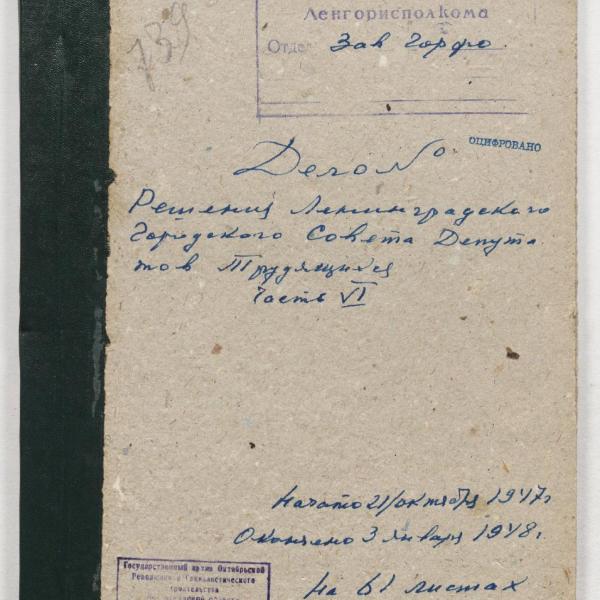 739
Ленгорисполкома
Отдел Зав Горфо
ОЦИФРОВАНО
Дело №
Решения Ленинградского
Городского Совета Депута
тов Трудящихся
Часть VI
Начато 21/октября 1947г
Окончено 3 января 1948г.
Государственный архив Октябрьской
Революции и Социалистического
На 61 листах